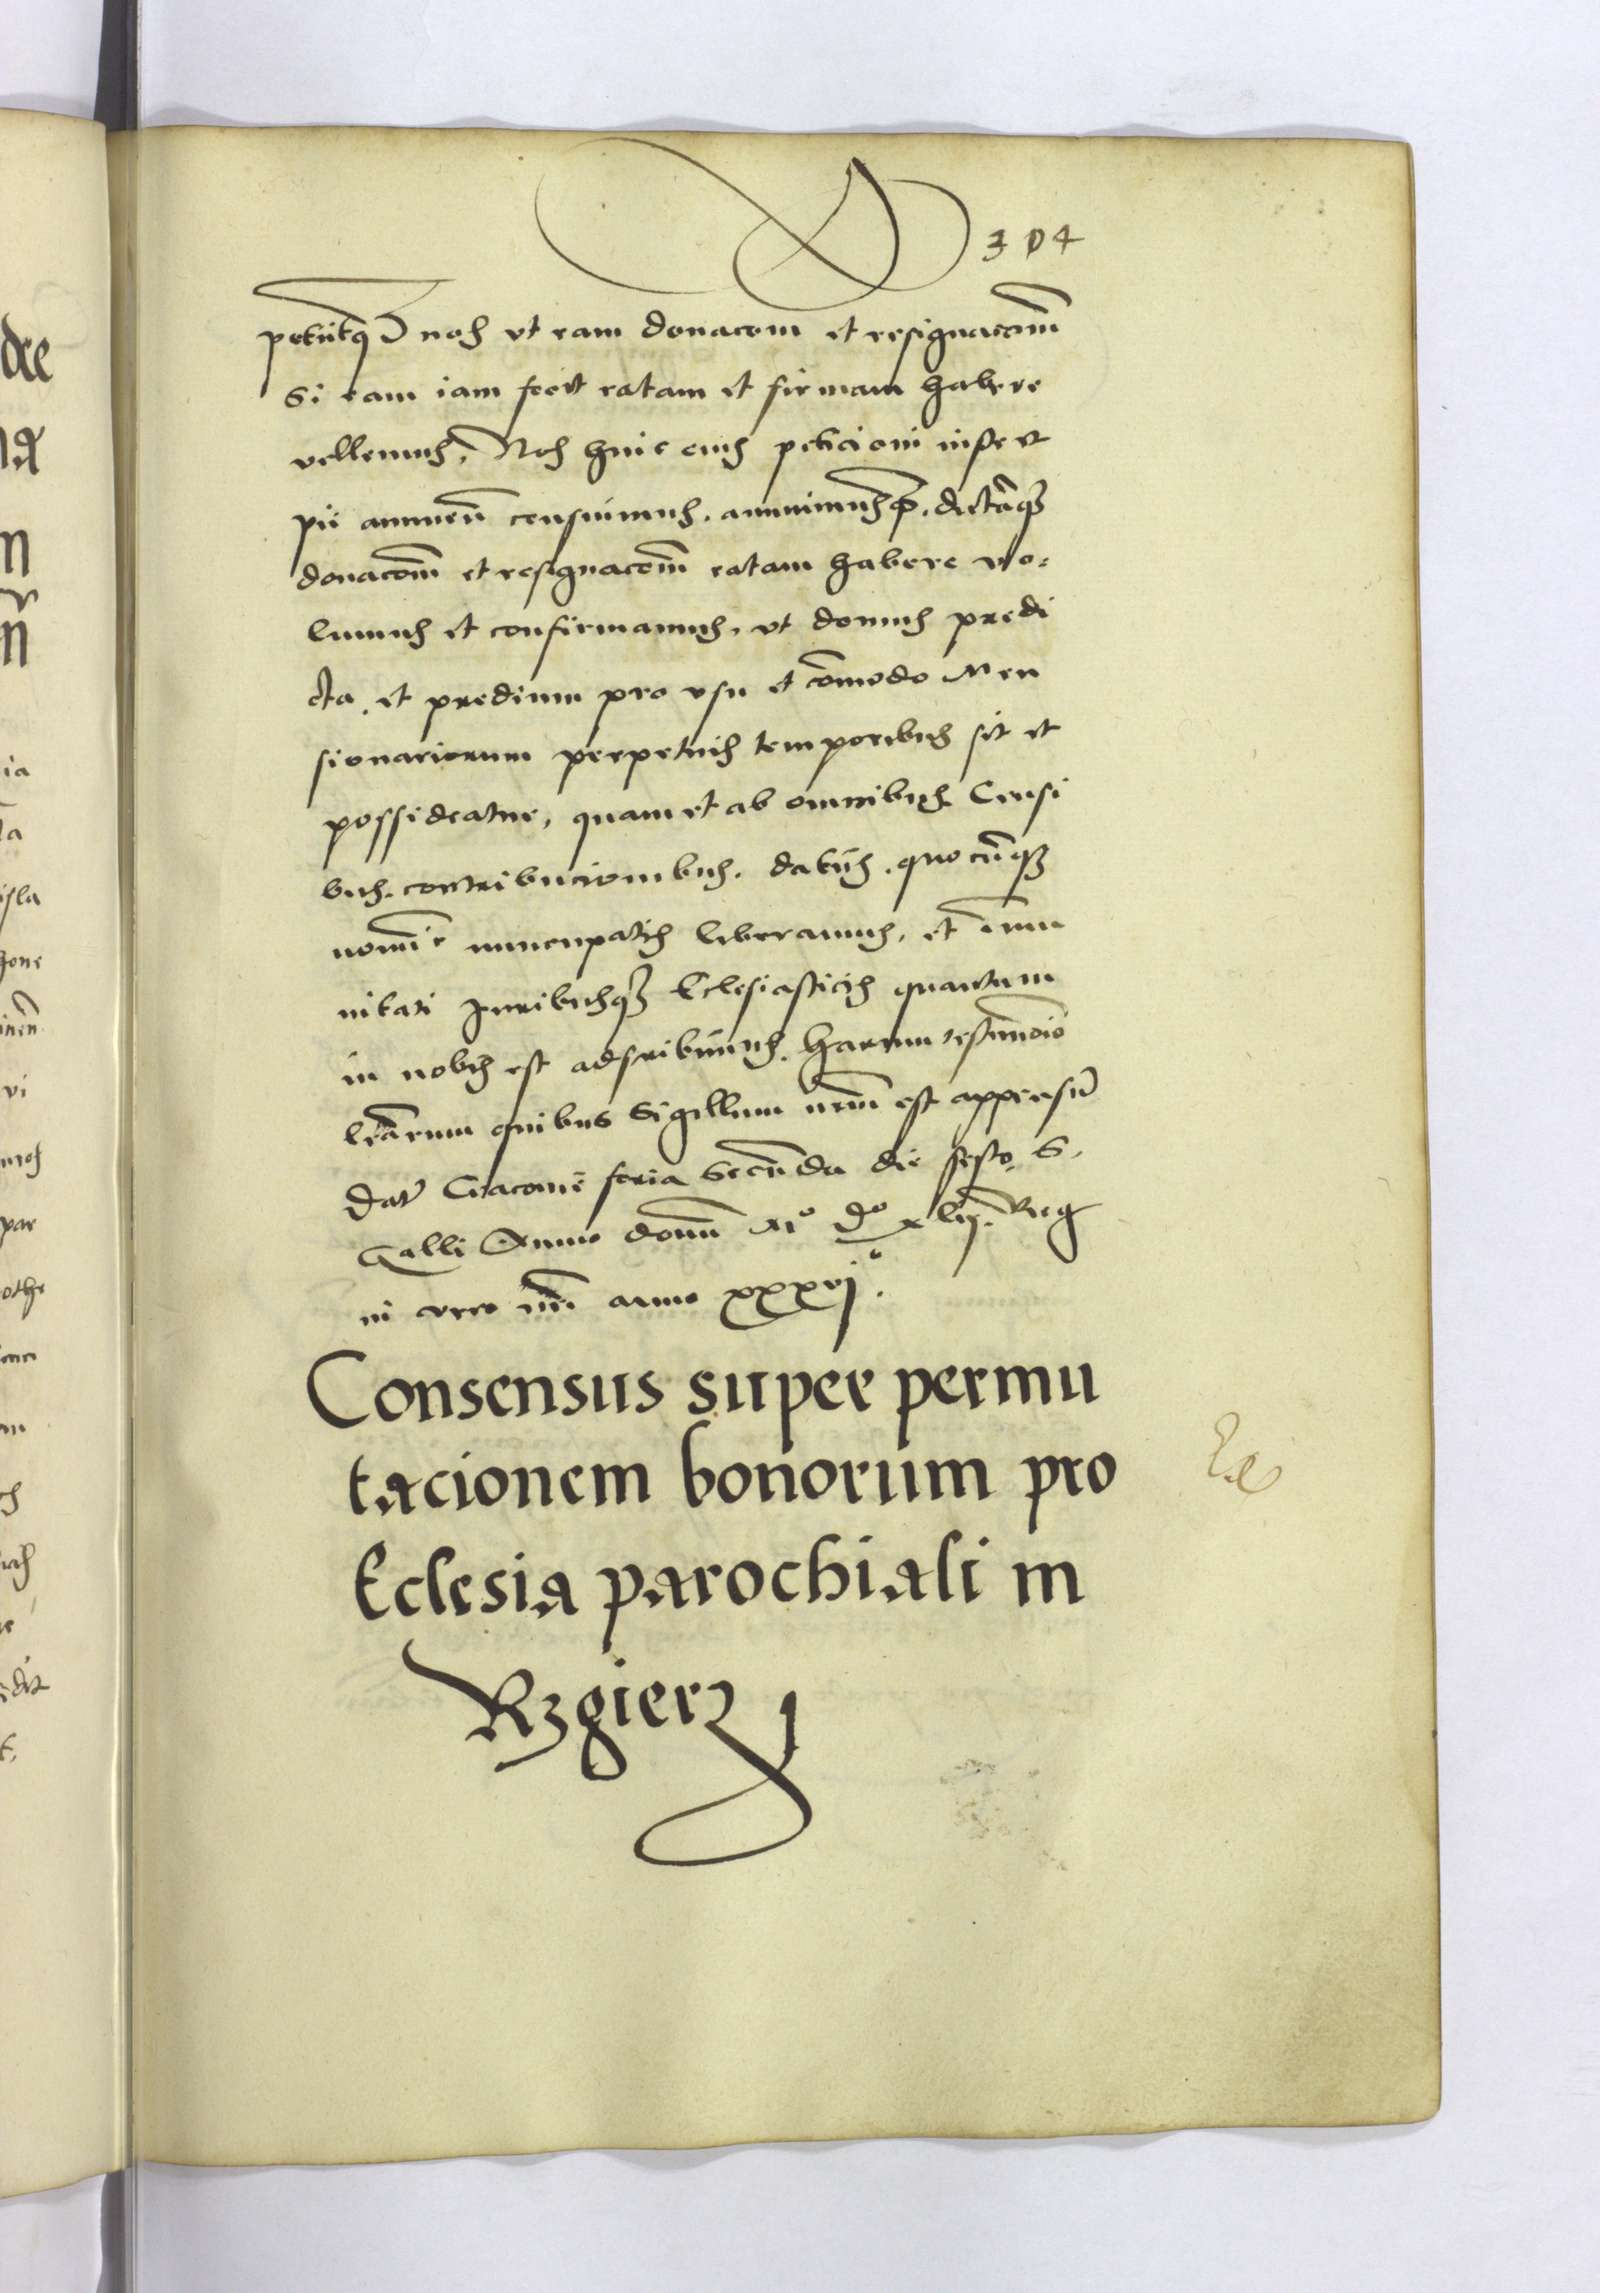 304
petiitq nos vt eam donacom et resignacom
Si eam iam fecit ratam et firmam habere
vellemus, Nos huic eius peticioni iuste et
pii annuen censuimus. annuimusq. dictaqz
donacom et resignacom ratam habere vo=
lumus et confirmamus, vt domus predi
cta. et predium pro vsu et comodo Men
sionariorum perpetuis temporibus sit et
possideatur, quam et ab omnibus Censi
bus. contribucionibus. datiis. quocunqz
nomie nuncupatis liberamus, et immu
nitati Juribusqz Eclesiasticis quantum
in nobis est adscribimus. Harum testimonio
lrarum quibus Sigillum nrm est appensu
Dat Cracouie feria Secunda die festo S.
Galli Anno domi Mo Do xlij. Reg
ni vero nri anno xxxvj.
Consensus super permu
tacionem bonorum pro
Eclesia parochiali in
Rzgierz